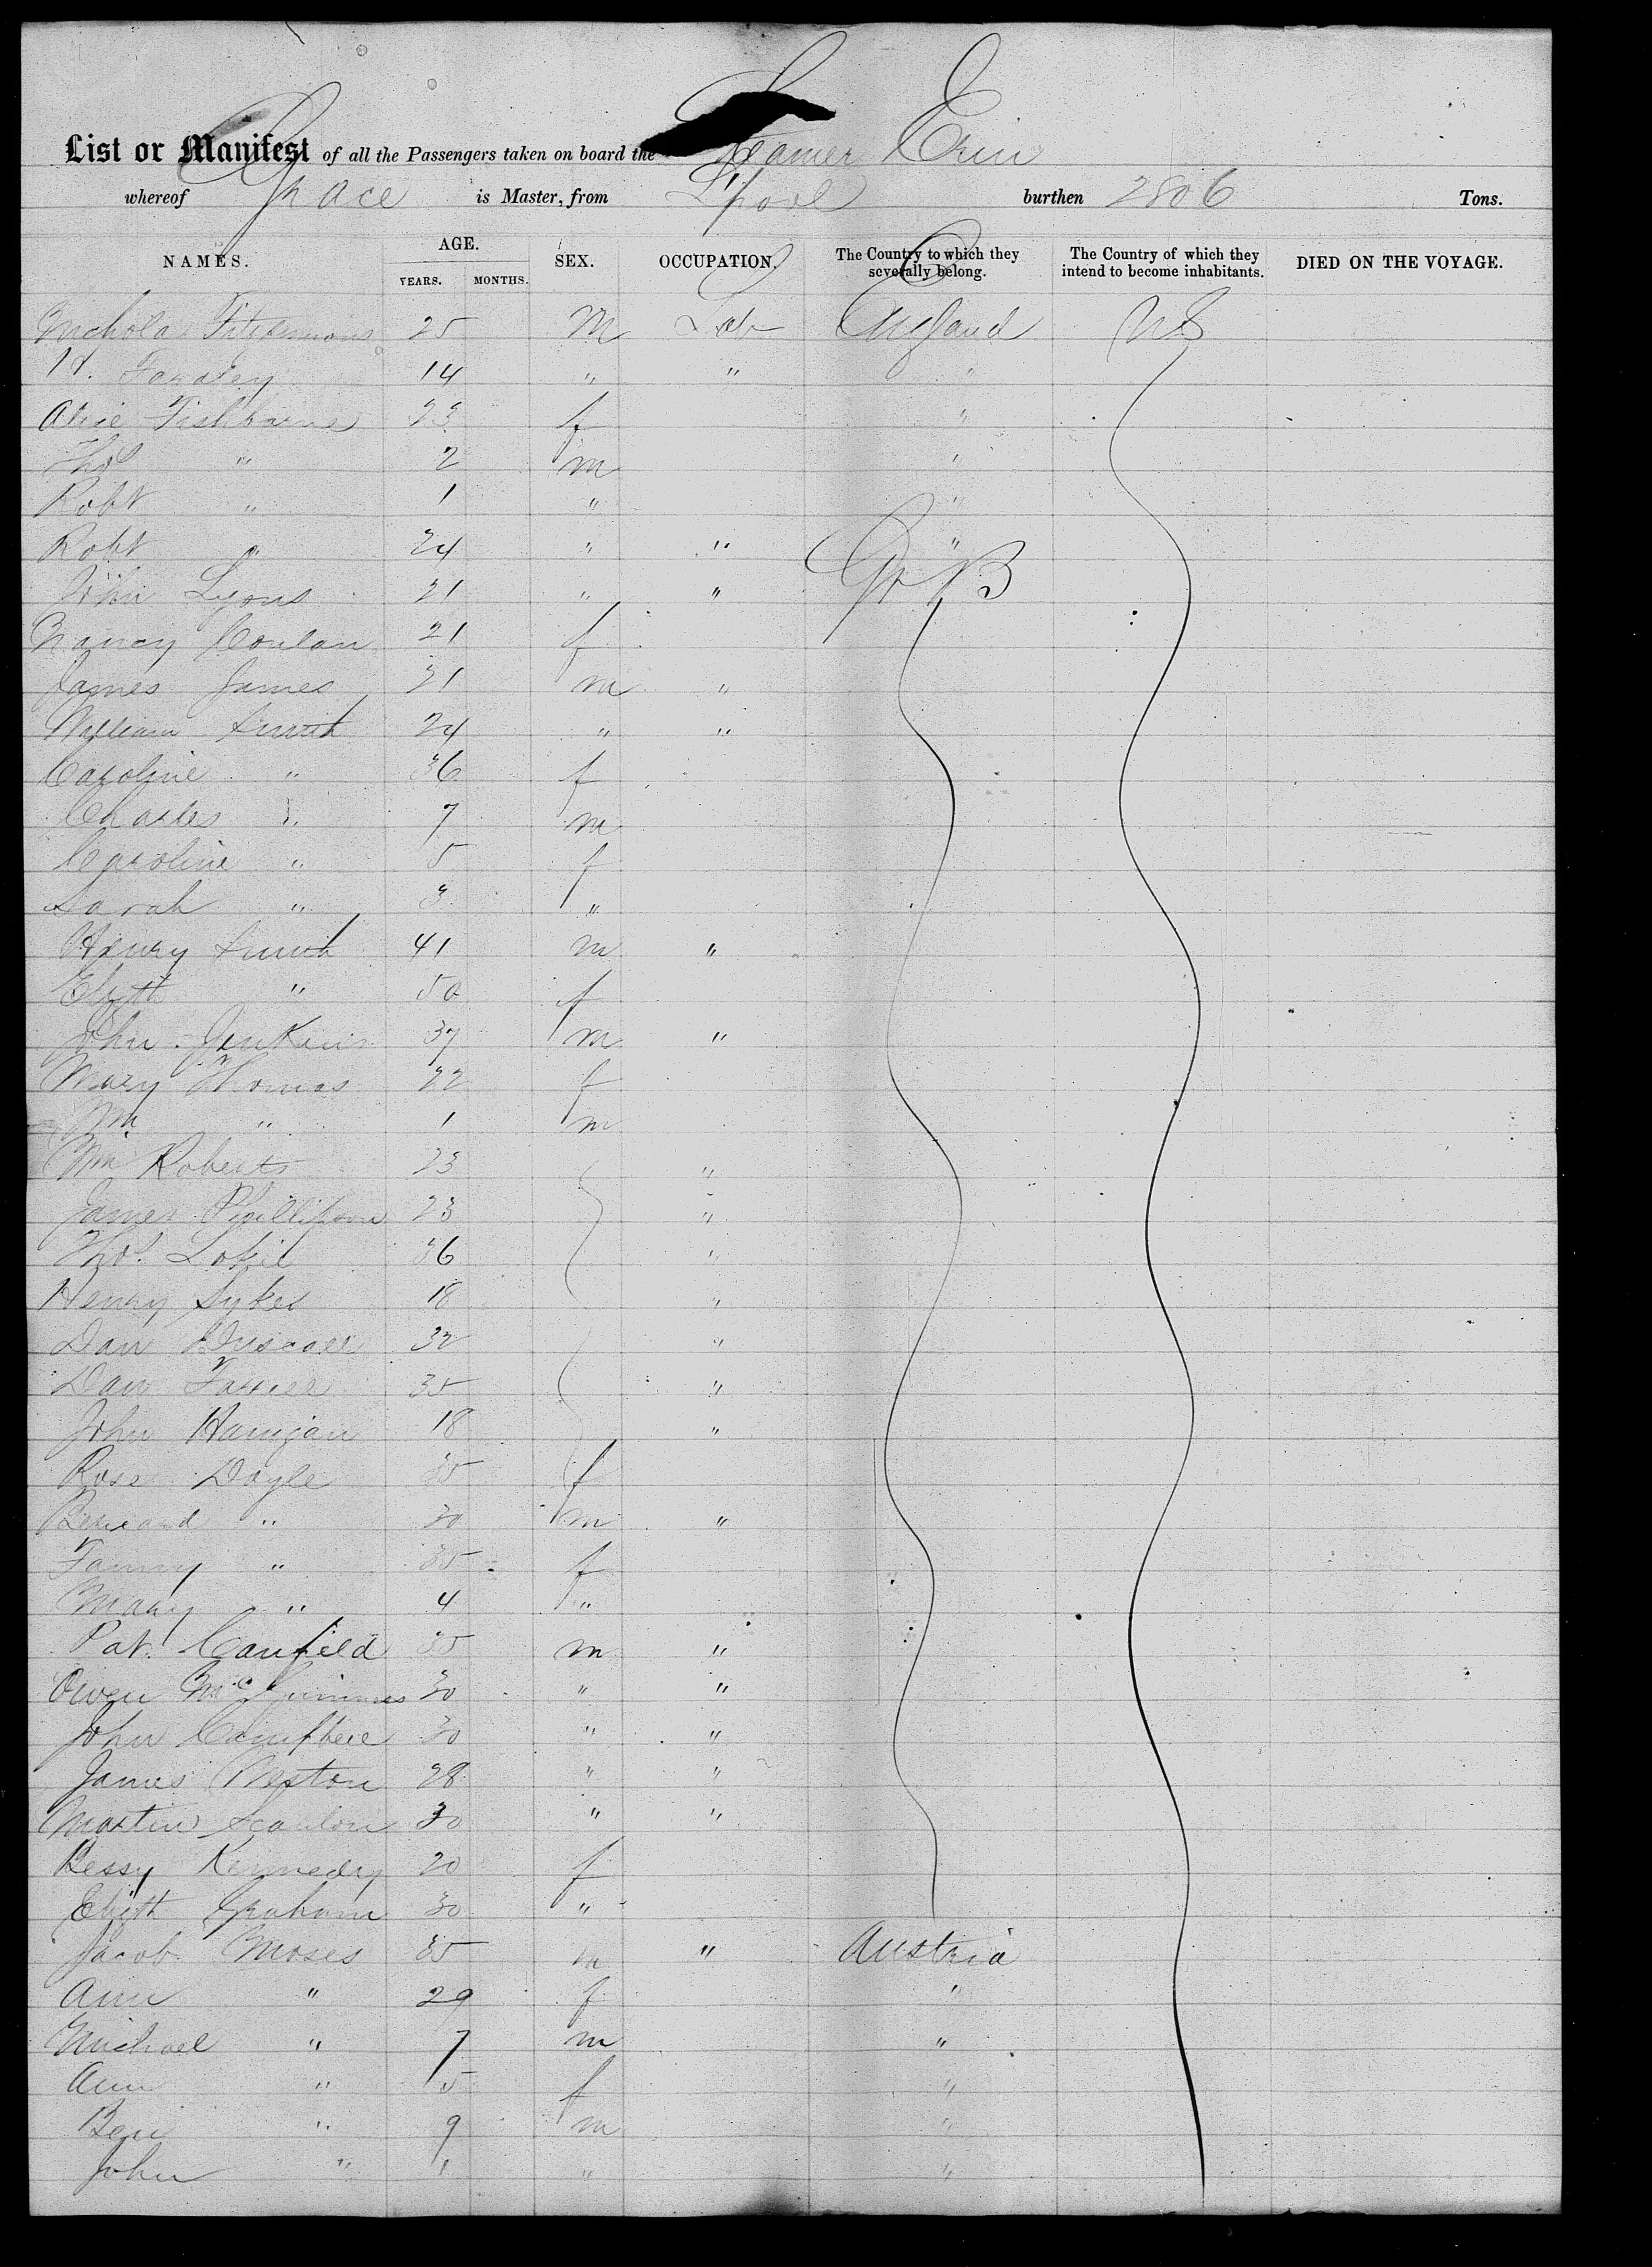 List or Manifest of all the Passengers taken on board the Steamer Erin
whereof Grace is Master, from L'pool burthen 2806 Tons.
NAMES. AGE. YEARS. MONTHS. SEX. OCCUPATION. The Country to which they severally belong. The Country of which they intend to become inhabitants. DIED ON THE VOYAGE.
Nicholas Fitzsimmons 25 M Lab England US
H. 14 " " "
Alice 23 f "
Thos " 2 m "
Robt " 1 " "
Robt " 24 " " "
John Lyons 21 " " Gt B
Nancy Conlan 21 f
James James 21 m "
William Smith 24 " "
Caroline " 36 f
Charles " 7 m
Caroline " 5 f
Sarah " 3 "
Henry Smith 41 m "
Elizth " 50 f
John Jenkins 37 m "
Mary Thomas 22 f
Wm " 1 m
Wm Roberts 23 "
James Phillipson 23 "
Thos. 36 "
Henry Sykes 18 "
Dan Driscoll 32 "
Dan 35 "
John Hanigan 18 "
Rose Doyle 35 f
Bernard " 30 m "
Fanny " 35 f
Mary " 4 "
Pat. Canfield 35 m "
Owen 30 " "
John Campbell 30 " "
James Weston 28 " "
Martin Scanlon 30 " "
Bessy Kennedy 20 f
Elizth Graham 30 "
Jacob Moses 35 m " Austria
Ann " 29 f "
Michael " 7 m "
Ann " 5 f "
Ben " 9 m "
John " 1 " "